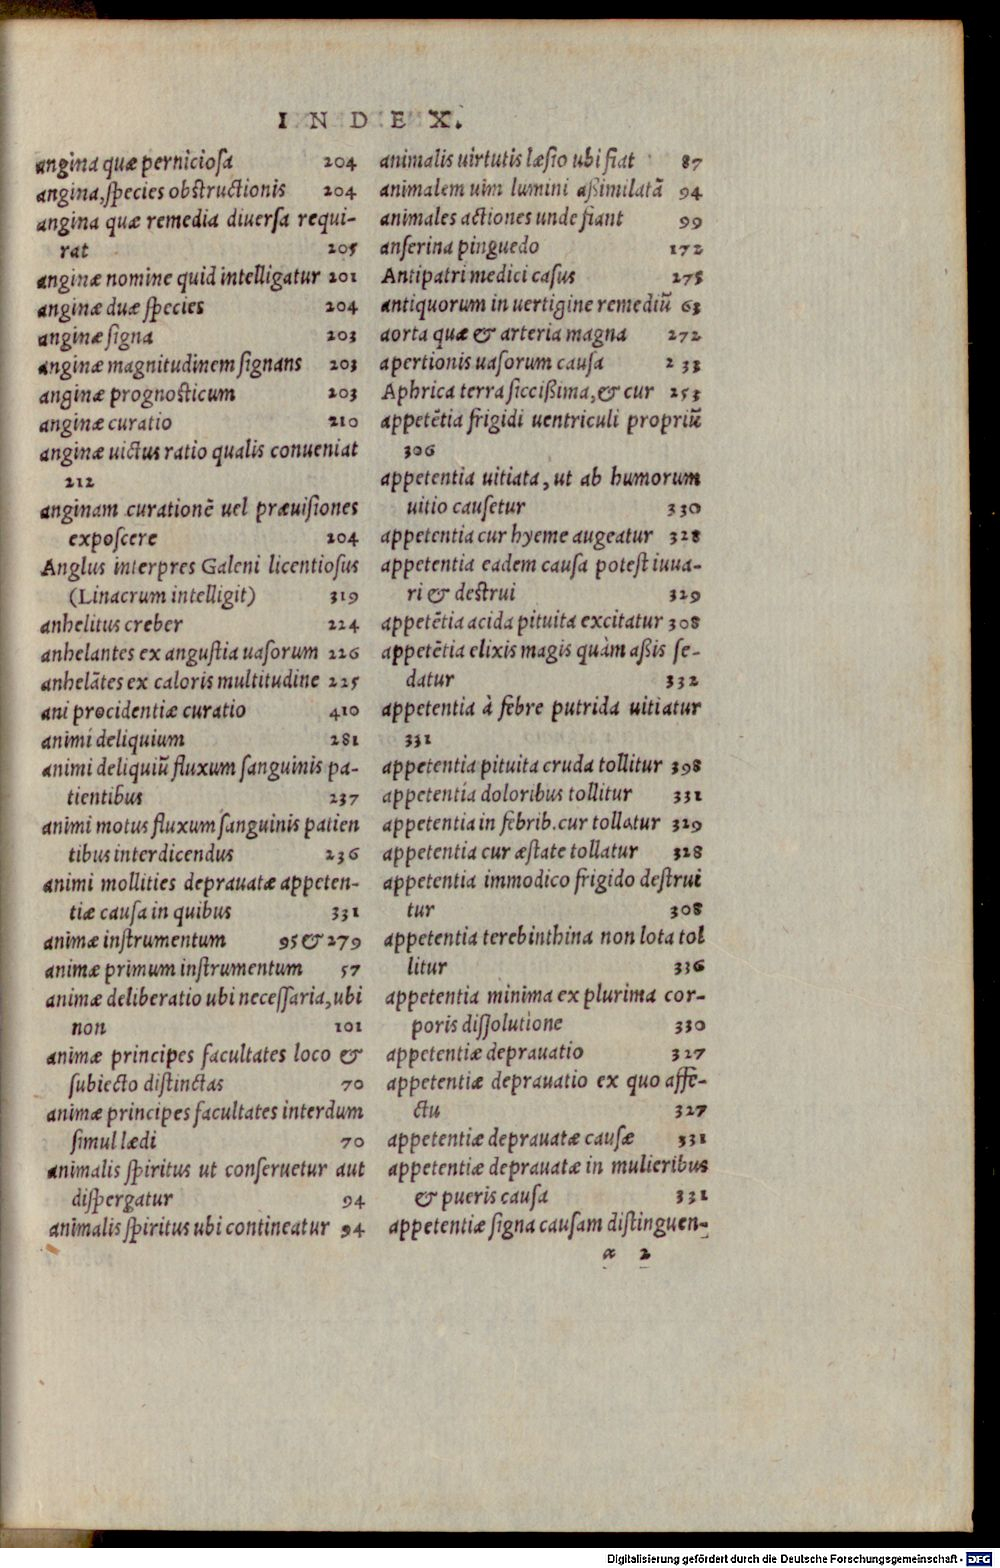 INDEX.
angina quæ perniciosa 204
angina, species obstructionis 204
angina quæ remedia diuersa requi-
rat 205
anginæ nomine quid intelligatur 201
anginæ duæ species 204
anginæ signa 203
anginæ magnitudinem signans 203
anginæ prognosticum 203
anginæ curatio 210
anginæ uictus ratio qualis conueniat
212
anginam curationē uel præuisiones
exposcere 204
Anglus interpres Galeni licentiosus
(Linacrum intelligit) 319
anhelitus creber 224
anhelantes ex angustia uasorum 226
anhelātes ex caloris multitudine 225
ani procidentiæ curatio 410
animi deliquium 281
animi deliquiū fluxum sanguinis pa-
tientibus 237
animi motus fluxum sanguinis patien
tibus interdicendus 236
animi mollities deprauatæ appeten-
tiæ causa in quibus 331
animæ instrumentum 95 & 279
animæ primum instrumentum 57
animæ deliberatio ubi necessaria, ubi
non 101
animæ principes facultates loco &
subiecto distinctas 70
animæ principes facultates interdum
simul lædi 70
animalis spiritus ut conseruetur aut
dispergatur 94
animalis spiritus ubi contineatur 94
animalis uirtutis læsio ubi fiat 87
animalem uim lumini aßimilatā 94
animales actiones unde fiant 99
anserina pinguedo 172
Antipatri medici casus 275
antiquorum in uertigine remediū 63
aorta quæ & arteria magna 272
apertionis uasorum causa 233
Aphrica terra siccißima, & cur 253
appetētia frigidi uentriculi propriū
306
appetentia uitiata, ut ab humorum
uitio causetur 330
appetentia cur hyeme augeatur 328
appetentia eadem causa potest iuua-
ri & destrui 329
appetētia acida pituita excitatur 308
appetētia elixis magis quàm aßis se-
datur 332
appetentia à febre putrida uitiatur
331
appetentia pituita cruda tollitur 398
appetentia doloribus tollitur 331
appetentia in febrib. cur tollatur 329
appetentia cur æstate tollatur 328
appetentia immodico frigido destrui
tur 308
appetentia terebinthina non lota tol
litur 336
appetentia minima ex plurima cor-
poris dissolutione 330
appetentiæ deprauatio 327
appetentiæ deprauatio ex quo affe-
ctu 327
appetentiæ deprauatæ causæ 331
appetentiæ deprauatæ in mulieribus
& pueris causa 331
appetentiæ signa causam distinguen-
α 2
Digitalisierung gefördert durch die Deutsche Forschungsgemeinschaft - DFG